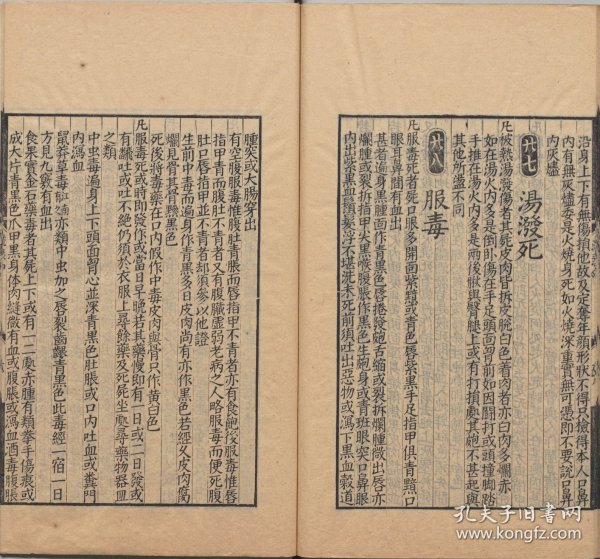 沿身上下有無傷損他故及定奪年顏形狀不得只檢得本人口鼻
內有無灰燼委是火燒身死如火燒深重實無可憑即不要說口鼻
內灰燼
廿七 湯潑死
凡被熱湯潑傷者其屍皮肉皆拆皮脫白色着肉者亦白肉多爛赤
如在湯火內多是倒臥傷在手足頭面胷前如因鬪打或頭撞脚踏
手推在湯火內多是兩後䐐與臀腿上或有打損處其皰不甚起與
其他所盪不同
廿八 服毒
凡服毒死者死口眼多開面紫黯或青色唇紫黑手足指甲俱青黯口
眼耳鼻間有血出
甚者遍身黑腫面作青黑色唇捲發皰舌縮或裂拆爛腫微出唇亦
爛腫或裂拆指甲尖黑喉腹脹作黑色生皰身或青斑眼突口鼻眼
內出紫黑血鬚髮浮不堪洗未死前須吐出惡物或瀉下黑血穀道
腫突或大腸穿出
有空腹服毒惟腹肚青脹而唇指甲不青者亦有食飽後服毒惟唇
指甲青而腹肚不青者又有腹臟虛弱老病之人略服毒而便死腹
肚口唇指甲並不青者却須參以他證
生前中毒而遍身作青黑多日皮肉尚有亦作黑色若經久皮肉腐
爛見骨其骨黲黑色
死後將毒藥在口內假作中毒皮肉與骨只作黃白色
凡服毒死或時即發作或當日早晚若其藥慢即有一日或二日發或
有飜吐或吐不絕仍須於衣服上尋餘藥及死屍坐處尋藥物器皿
之類
中虫毒遍身上下頭面胷心並深青黑色肚脹或口內吐血或糞門
內瀉血
鼠莽草毒江南亦類中虫加之唇裂齒齦青黑色此毒經一宿一日
方見九竅有血出
食果實金石藥毒者其屍上下或有一二處赤腫有類拳手傷痕或
成大片青黑色爪甲黑身体肉縫微有血或腹脹或瀉血酒毒腹脹
孔夫子旧书网
www.kongfz.com